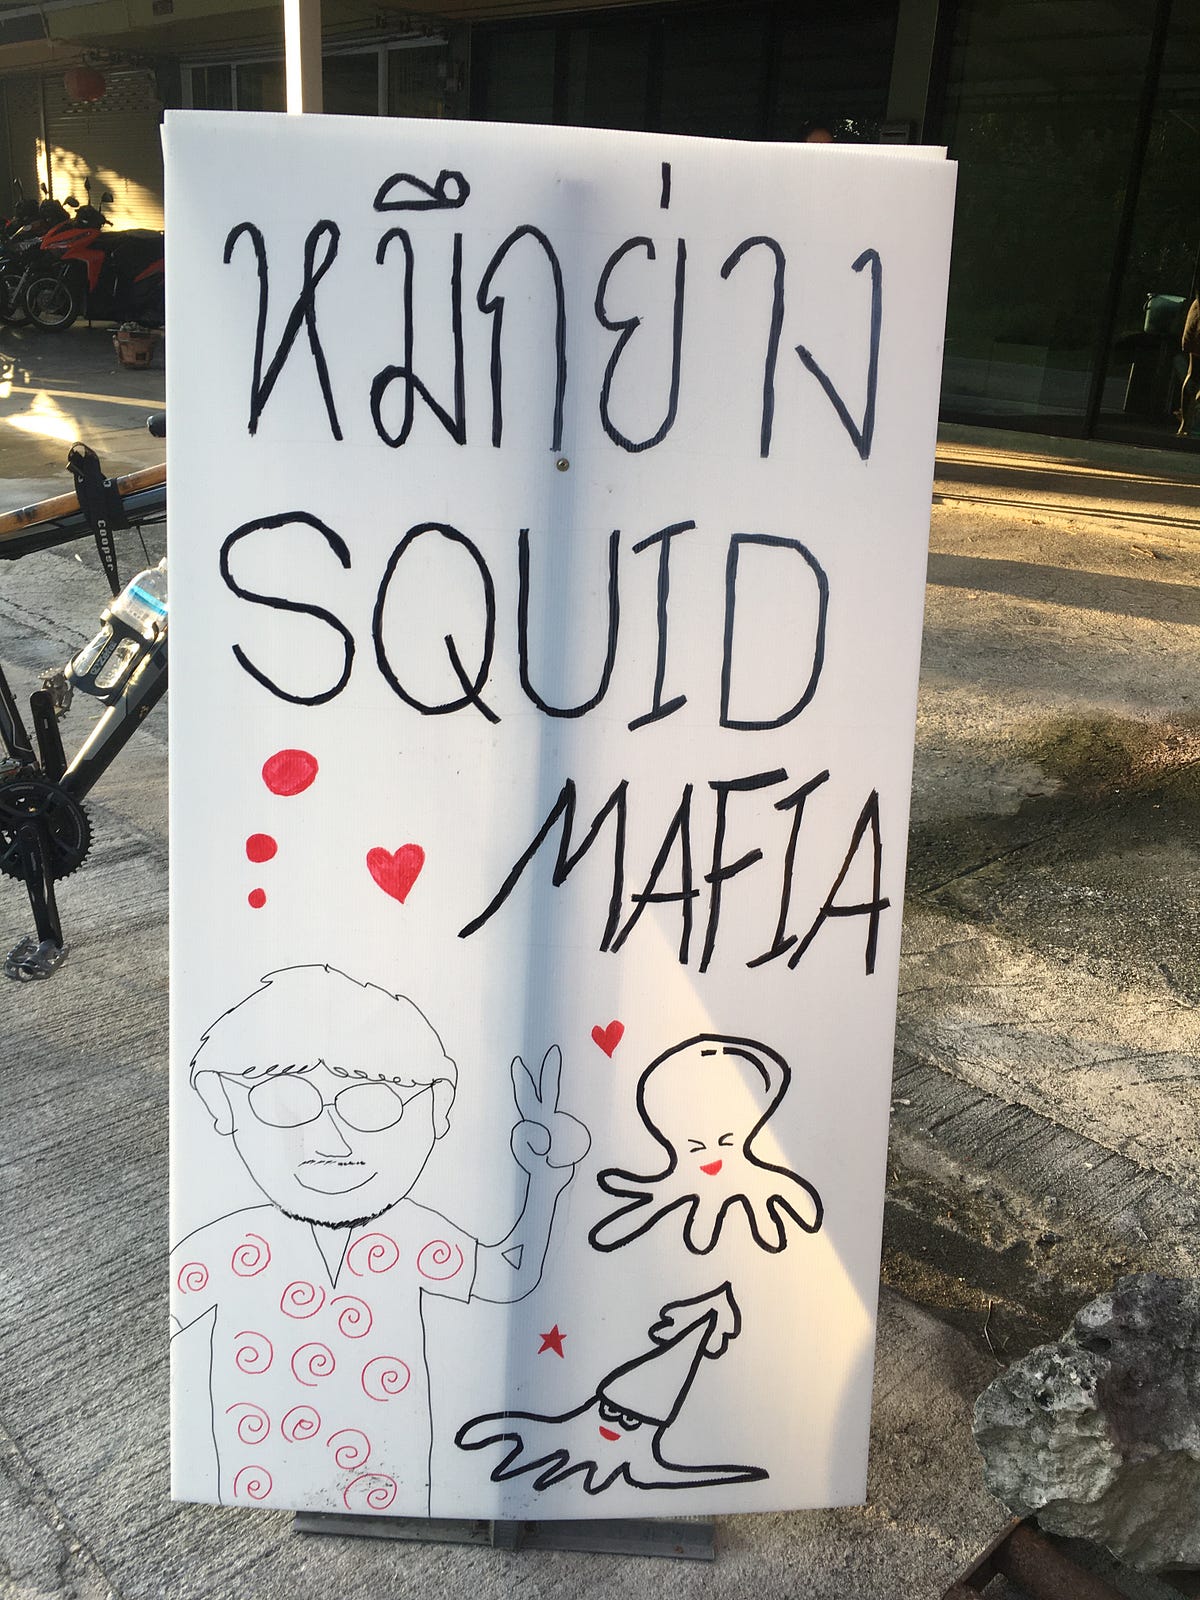 หมึกย่าง
SQUID
MAFIA
Cooper